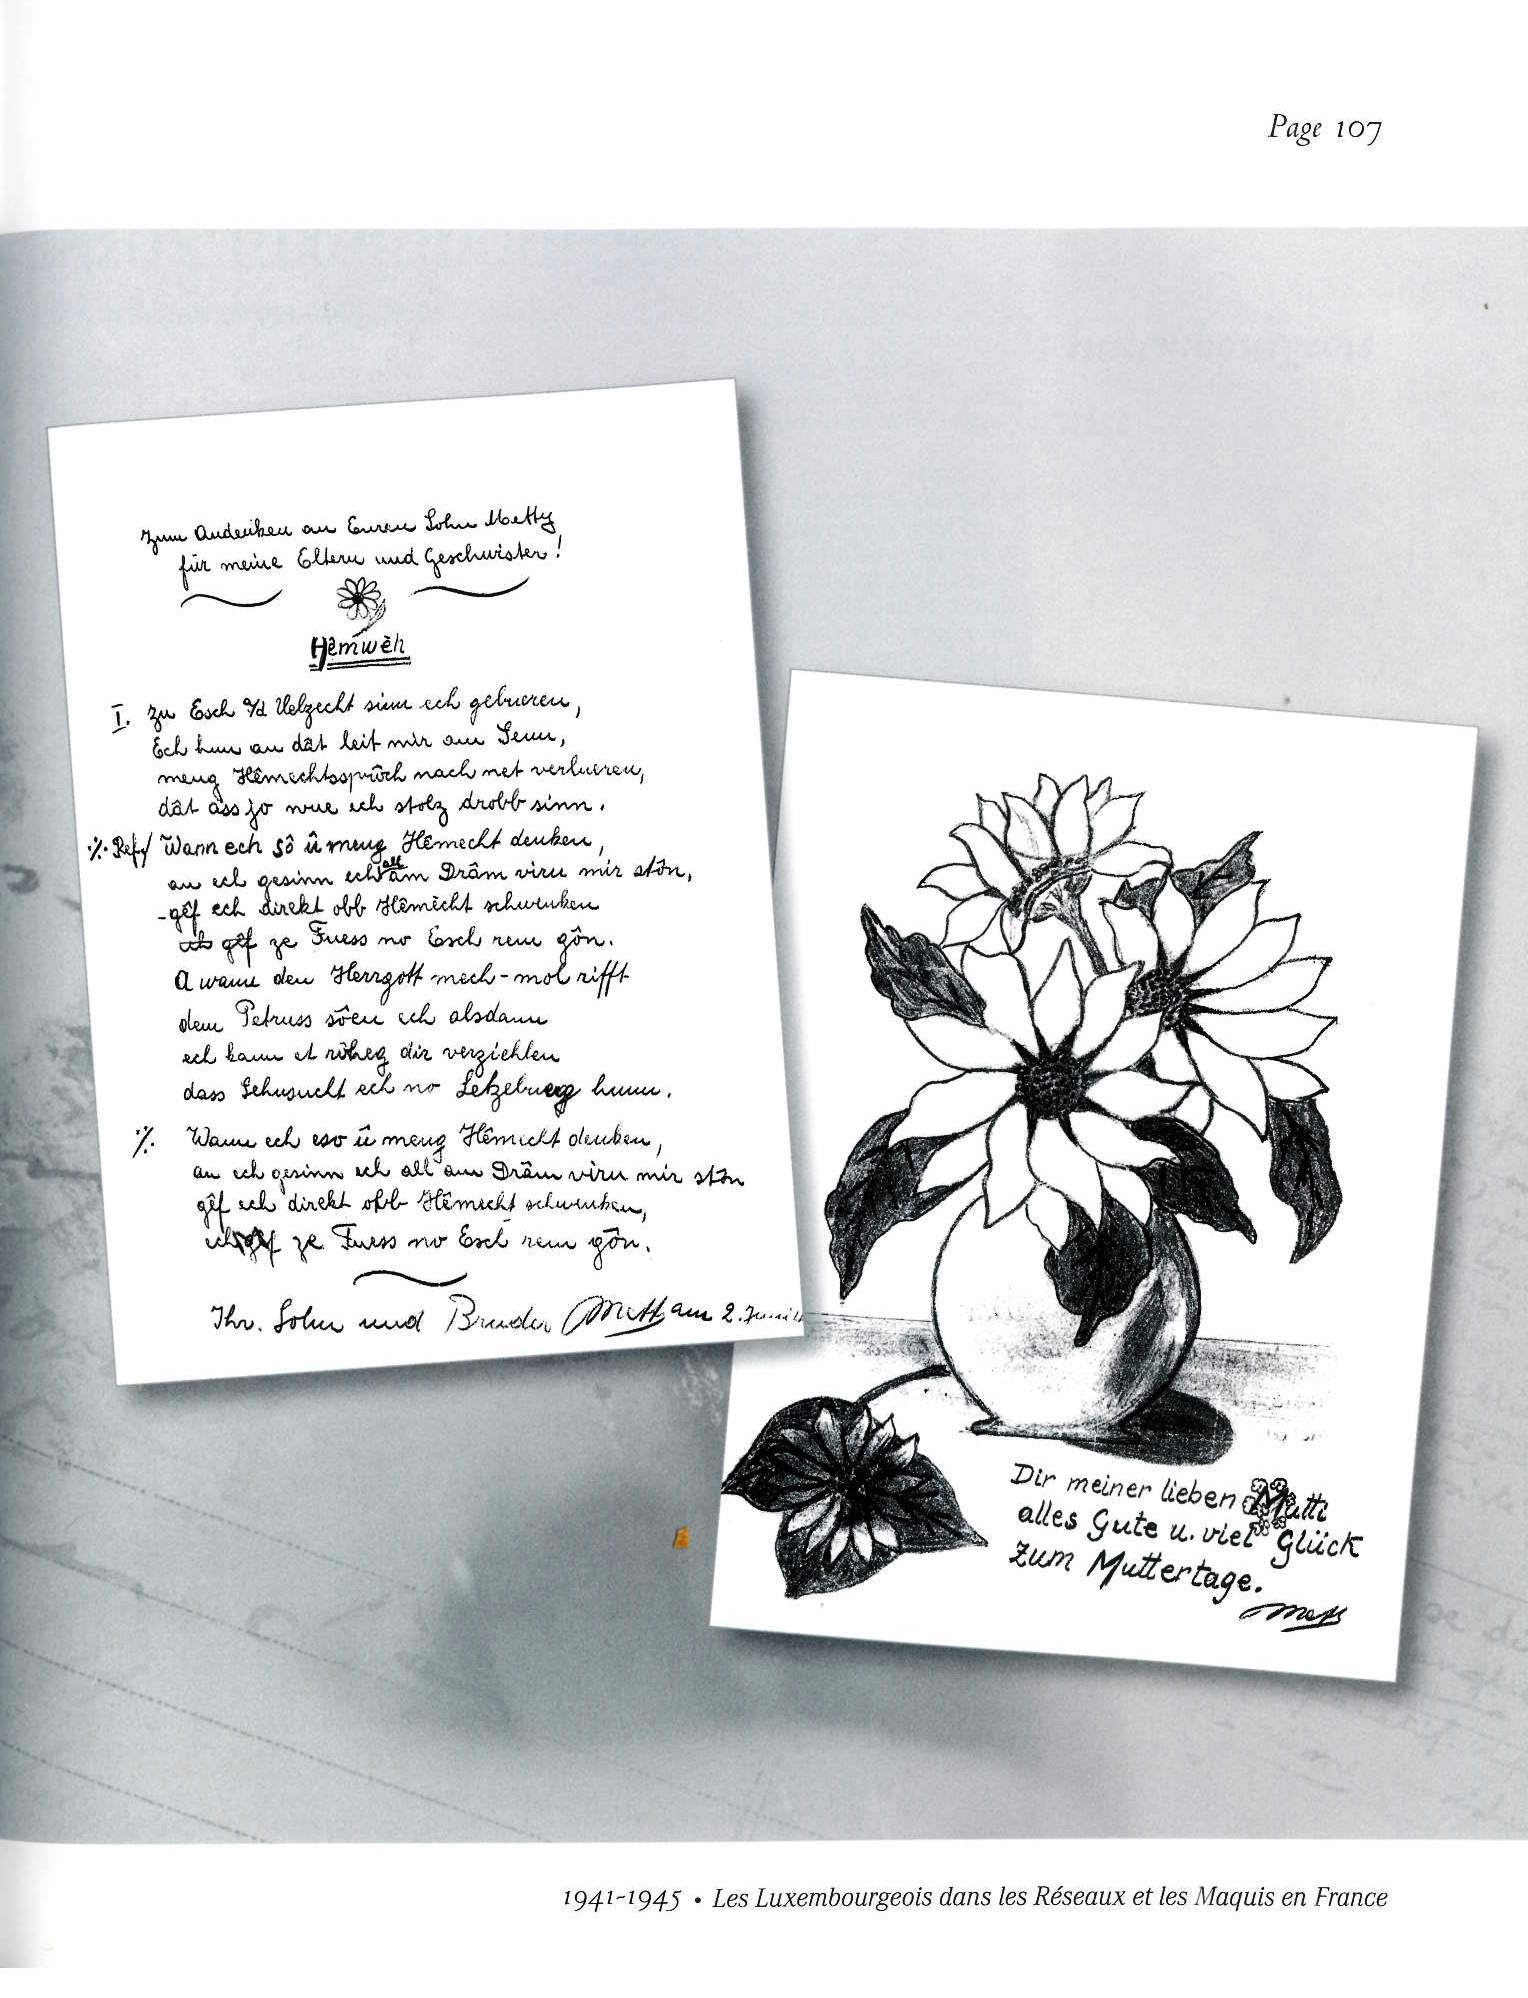 Page 107
Zum Andenken an Euren Sohn Metty
für meine Eltern und Geschwister!
Hêmwèh
I. Zu Esch a/d Uelzecht sinn ech gebueren,
Ech hun an dât leit mir am Senn,
meng Hêmechtssprôch nach net verlueren,
dât ass jo wue ech stolz drobb sinn.
·/· Ref/ Wann ech sô û meng Hêmecht denken,
an ech gesinn ech all am Drâm viru mir stôn,
-gêf ech direkt obb Hêmecht schwenken
gêf ze Fuess no Esch rem gôn.
A wann den Herrgott mech-mol rifft
dem Petruss sôen ech alsdann
ech kann et rôheg dir verziehlen
dass Sehnsucht ech no Letzeburg hunn.
·/· Wann ech eso û meng Hêmecht denken,
an ech gesinn ech all am Drâm viru mir stôn
gêf ech direkt obb Hêmecht schwenken,
ze Fuess no Esch rem gôn.
Ihr. Sohn und Bruder Mett am 2. Juni
Dir meiner lieben Mutti
alles Gute u. viel Glück
zum Muttertage.
Mett
1941-1945 • Les Luxembourgeois dans les Réseaux et les Maquis en France